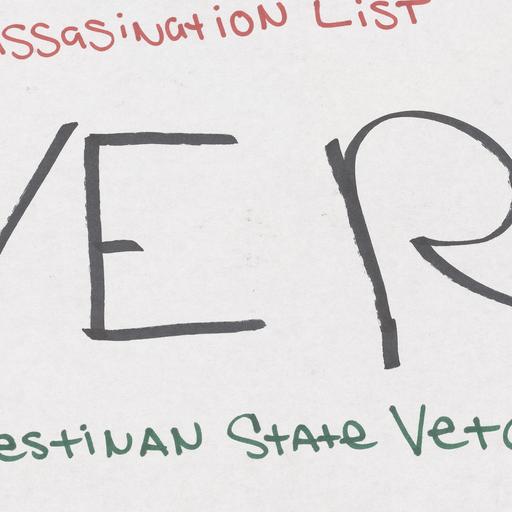 assasination List
VER
estinAN State Veto